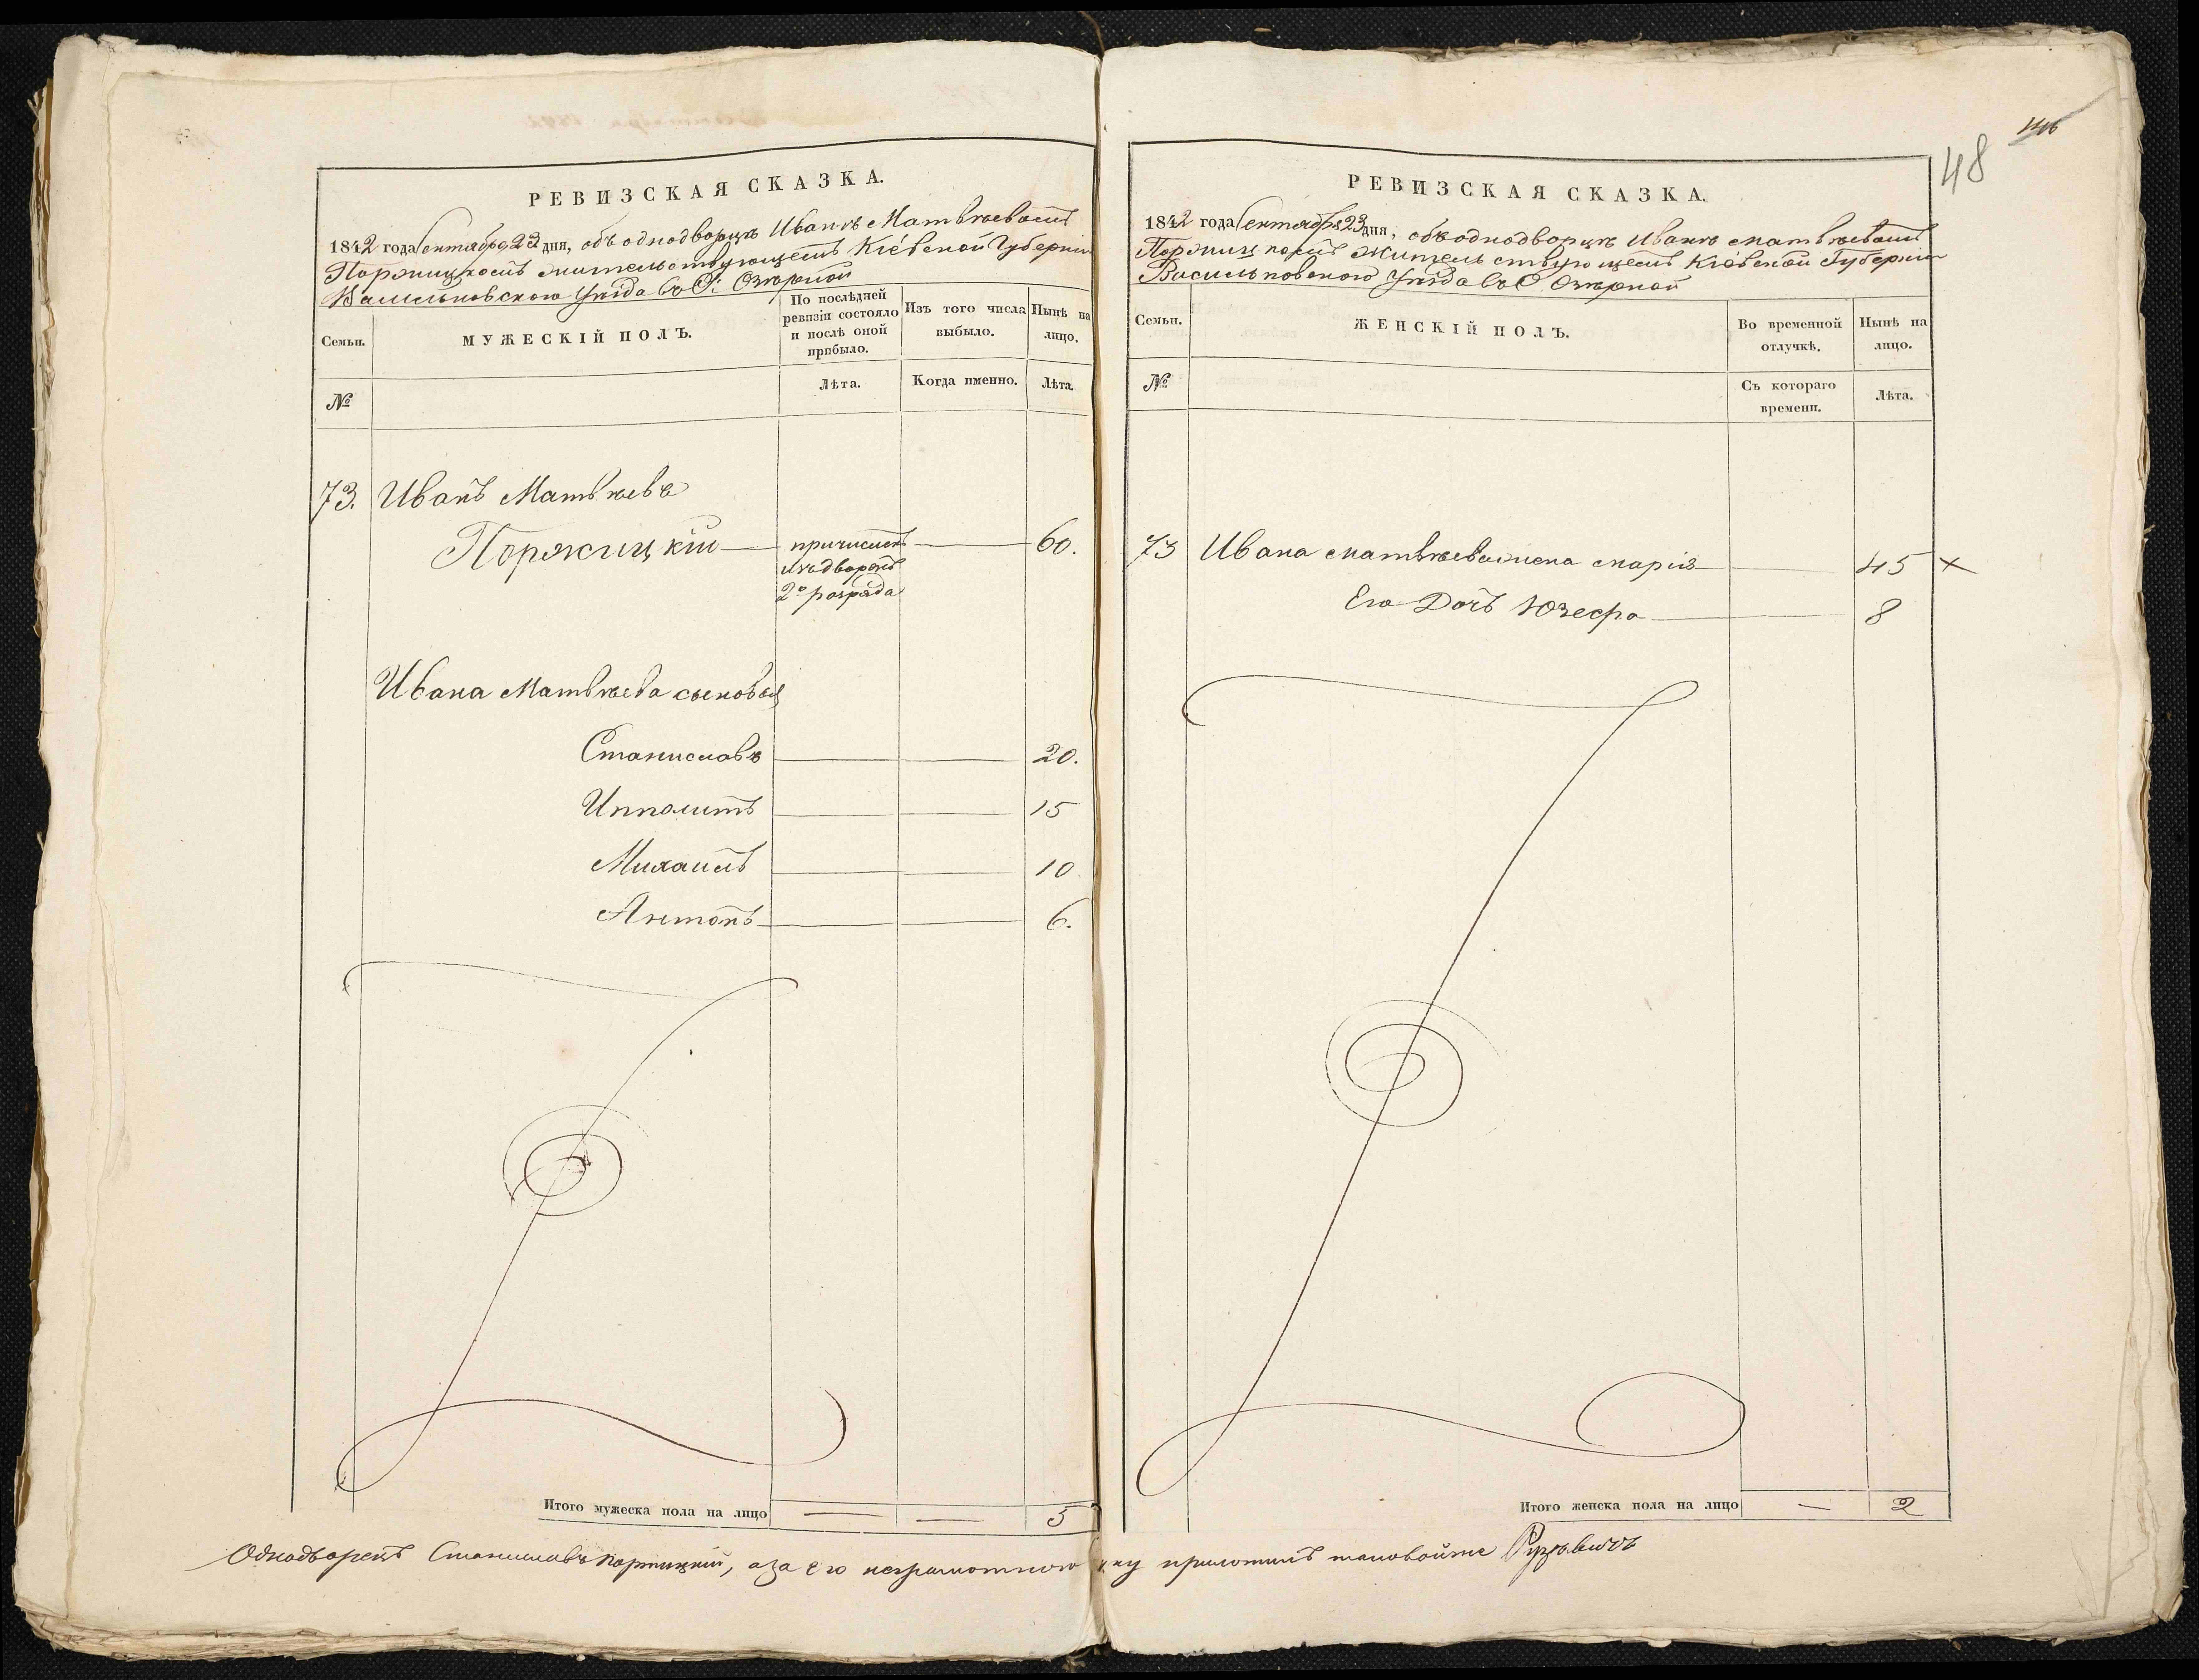 РЕВИЗСКАЯ СКАЗКА.
1842 года Сентября 23 дня, объ однодворцѣ Иванѣ Матвѣевомъ
Поржицкомъ жительствующемъ Кіевской Губерніи
Васильковскаго Уѣзда въ С. Озѣрной
Семьи.
МУЖЕСКІЙ ПОЛЪ.
По послѣдней ревизіи состояло и послѣ оной прибыло.
Изъ того числа выбыло.
Нынѣ на лицо.
№
Лѣта.
Когда именно.
Лѣта.
73. Иванъ Матвѣевъ
Поржицкій — причисленъ — 60.
изъ дворянъ
2о розряда
Ивана Матвѣева сыновья
Станиславъ — — 20.
Ипполитъ — — 15
Михаилъ — — 10
Антонъ — — 6.
Итого мужеска пола на лицо — — 5
48
РЕВИЗСКАЯ СКАЗКА.
1842 года Сентября 23 дня, объ однодворцѣ Иванѣ Матвѣевомъ
Поржицкомъ жительствующемъ Кіевской Губерніи
Васильковского Уѣзда въ С. Озѣрной
Семьи.
ЖЕНСКІЙ ПОЛЪ.
Во временной отлучкѣ.
Нынѣ на лицо.
№
Съ котораго времени.
Лѣта.
73 Ивана Матвѣева жена Марія — 45 ×
Его Дочь Юзефа — 8
Итого женска пола на лицо — 2
Однодворецъ Станиславъ Поржицкій, а за его неграмотного руку приложилъ таковойже